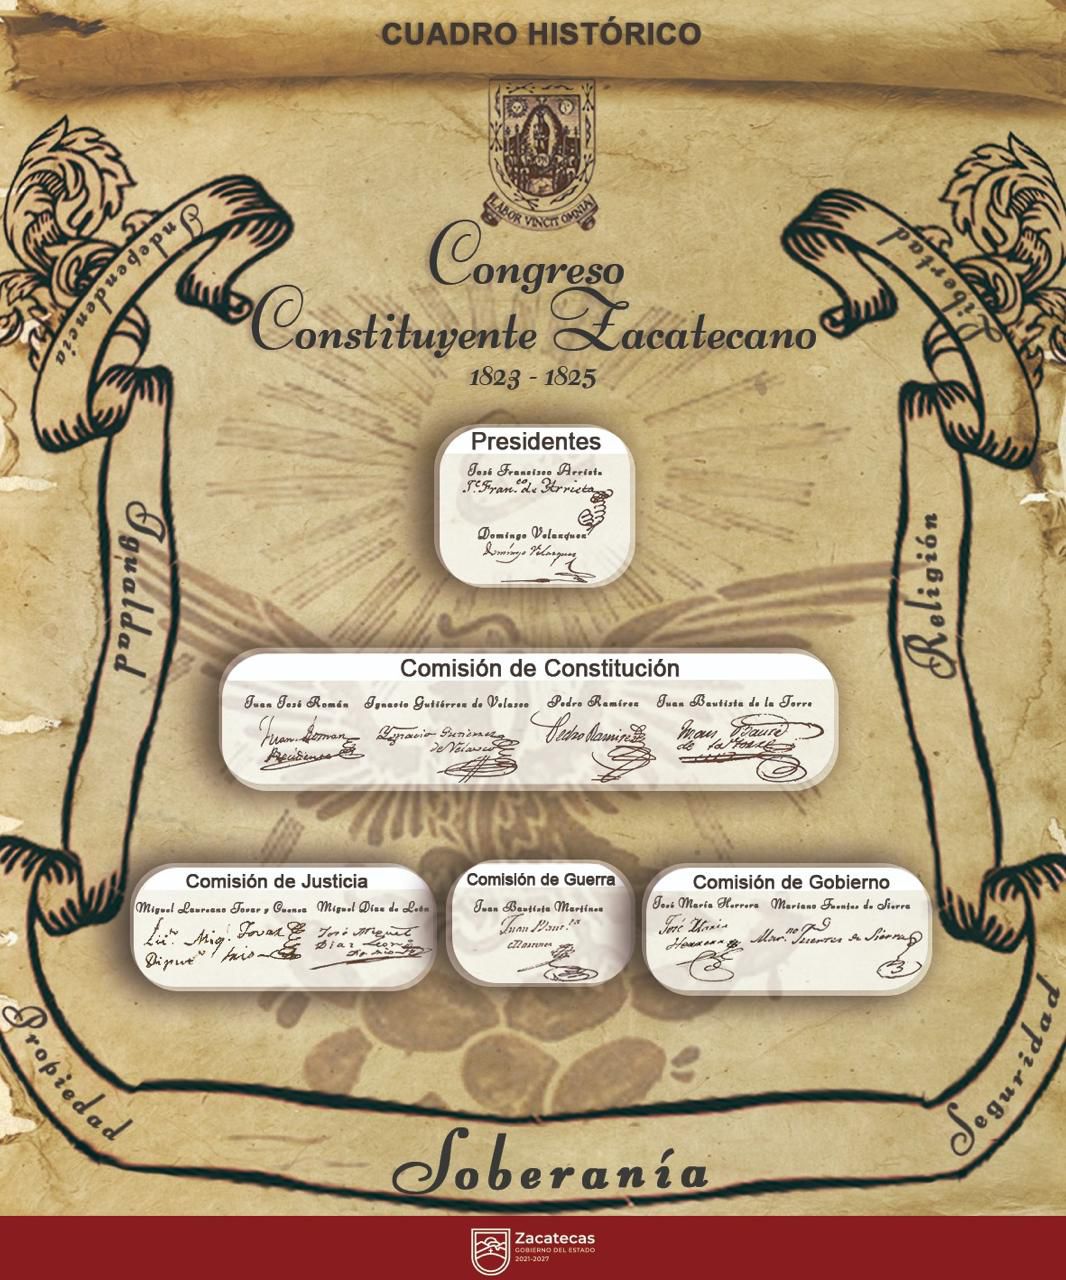 CUADRO HISTÓRICO
LABOR VINCIT OMNIA
Congreso
Constituyente Zacatecano
1823 - 1825
Independencia
Libertad
Igualdad
Religión
Presidentes
José Francisco Arrieta
Je. Franco. de Arrieta
Domingo Velazquez
Domingo Velazquez
Comisión de Constitución
Juan José Román Ignacio Gutiérrez de Velasco Pedro Ramírez Juan Bautista de la Torre
Juan Roman Ignacio Gutierrez Pedro Ramirez
Presidente de Velasco de la Torre
Comisión de Justicia
Miguel Laureano Tovar y Cuenca Miguel Díaz de León
Lic. Mig. Tovar José Miguel
Diaz Leon
Comisión de Guerra
Juan Bautista Martínez
Juan Bauta.
Comisión de Gobierno
José María Herrera Mariano Fuentes de Sierra
José Maria
Herrera Marno. Fuentes de Sierra
Propiedad
Seguridad
Soberanía
Zacatecas
GOBIERNO DEL ESTADO
2021-2027